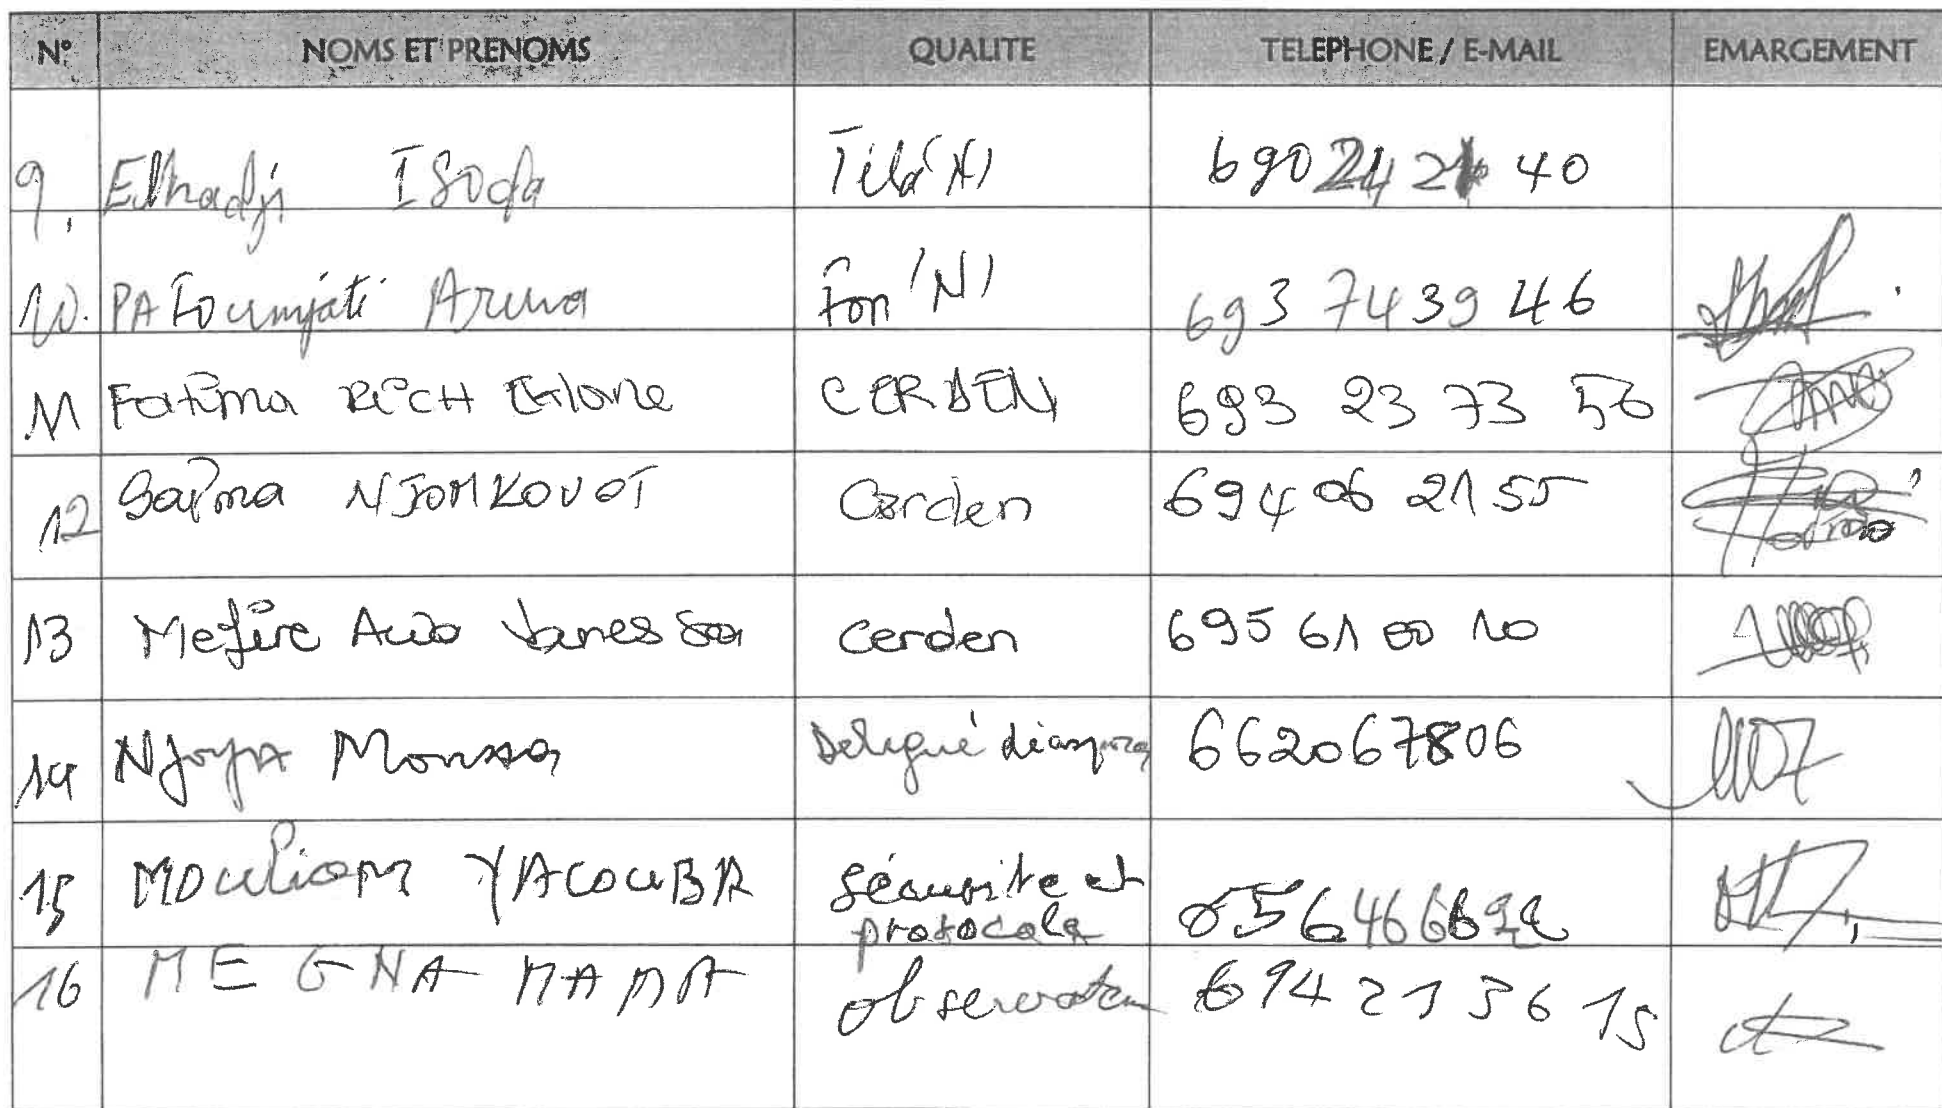 N° NOMS ET PRENOMS QUALITE TELEPHONE / E-MAIL EMARGEMENT
9. Elhadji 690 24 21 40
10. PA Foumjati Aruna Fon 'N' 693 74 39 46
11 Fatima CERDEN 693 23 73 56
12 Saïma NJOMKOUOT Cerden 694 06 21 55
13 Mefire Awo Vanessa Cerden 695 61 00 10
14 Njoya Moussa Délegué diaspora 662067806
15 MOULIOM YACOUBA Sécurite et
protocole 656466
16 ME GNA MAMA observateur 694 21 36 15